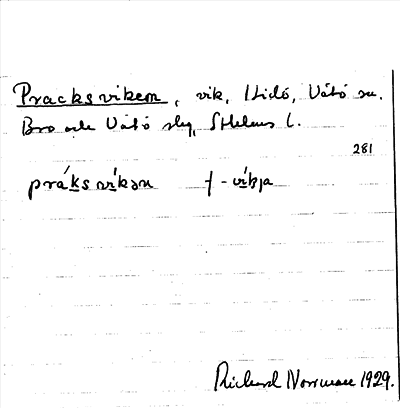 Pracksviken, vik, Lidö, Vätö sn.
Bro och Vätö slg, Sthlms l.
281
práksvíkən ɟ - víkja
Richard Norrman 1929.